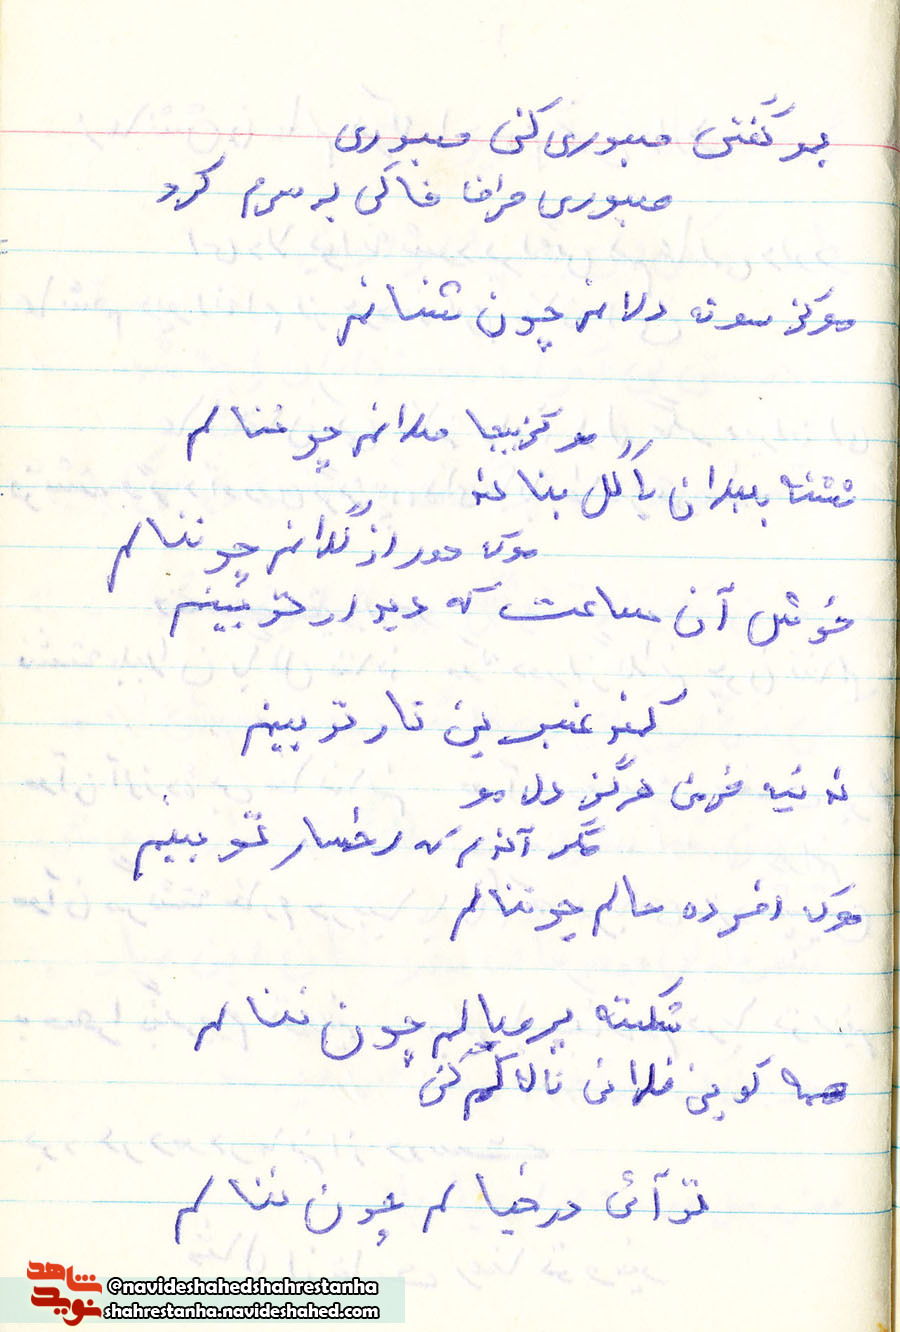 بمو گفتی صبوری کن صبوری
صبوری طرفه خاکی به سرم کرد
موکز سوته دلانم چون ننالم
موکز بیحاصلانم چو ننالم
نشسته بلبلان با گل بنالند
موکه دور از گلانم چو ننالم
خوش آن ساعت که دیدار تو بینم
کمند عنبرین تار تو بینم
نه بینه خرمی هرگز دل مو
مگر آندم که رخسار تو بینم
موکه افسرده حالم چو ننالم
شکسته پر و بالم چون ننالم
همه گوین فلانی ناله کم کن
تو آئی در خیالم چون ننالم
شاهد
نوید
@navideshahedshahrestanha
shahrestanha.navideshahed.com